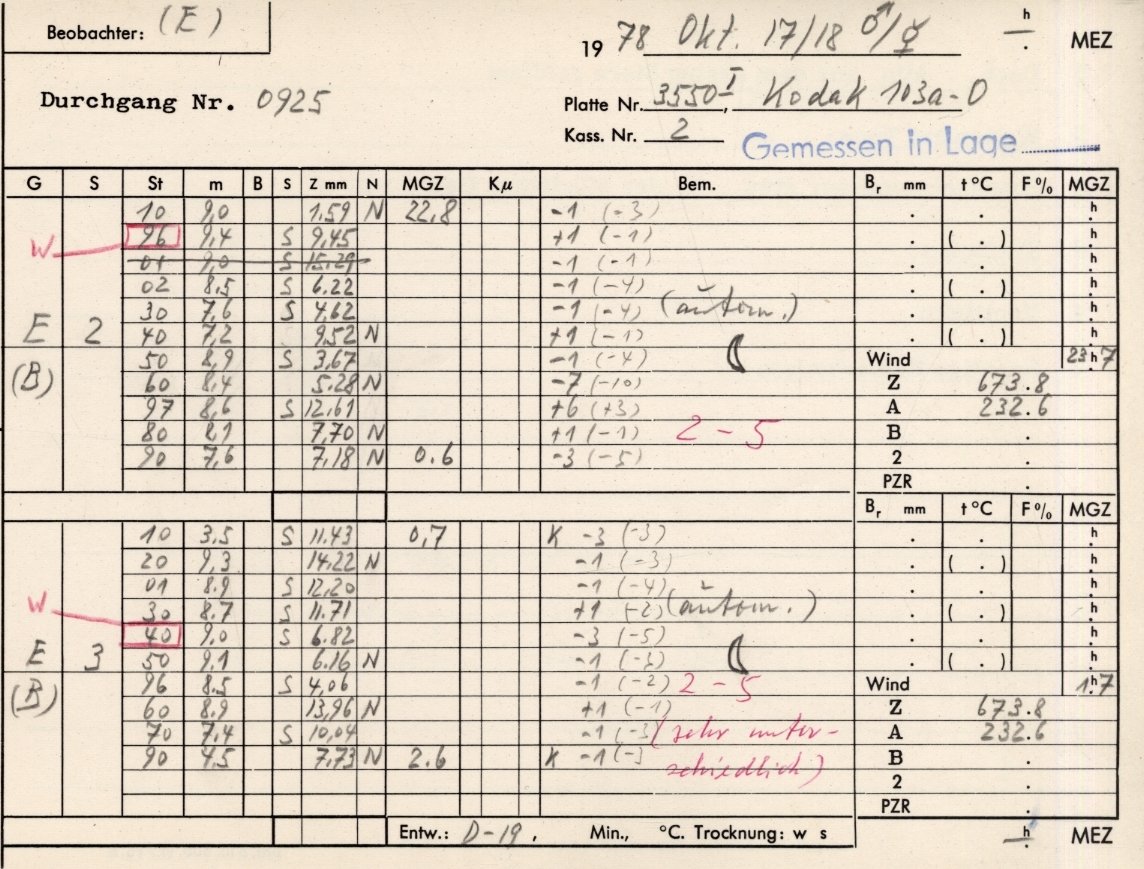 Beobachter: (E)
1978 Okt. 17/18 ♂/☿ h . MEZ
Durchgang Nr. 0925
Platte Nr. 3550 I, Kodak 103a-O
Kass. Nr. 2 Gemessen in Lage
G S St m B S Z mm N MGZ Kμ Bem. Br mm t °C F % MGZ
10 9,0 1.59 N 22,8 -1 (-3) . . h
W 96 9,4 S 9,45 +1 (-1) . ( . ) h
01 9,0 S 15.29 -1 (-1) . . h
02 8.5 S 6.22 -1 (-4) . ( . ) h
30 7,6 S 4,62 -1 (-4) (autom.) . . h
E 2 40 7,2 9,52 N +1 (-1) . ( . ) h
50 8,9 S 3,67 -1 (-4) Wind 23h7
(B) 60 8,4 5.28 N -7 (-10) Z 673.8
97 8,6 S 12,61 +6 (+3) A 232.6
80 8,1 7,70 N +1 (-1) 2-5 B .
90 7,6 7,18 N 0.6 -3 (-5) 2 .
PZR .
Br mm t °C F % MGZ
10 3.5 S 11.43 0,7 K -3 (-3) . . h
20 9,3 14,22 N -1 (-3) . ( . ) h
01 8.9 S 12,20 -1 (-4) . . h
W 30 8.7 S 11.71 +1 (-2) (autom.) . ( . ) h
40 9,0 S 6.82 -3 (-5) . . h
E 3 50 9,1 6.16 N -1 (-3) . ( . ) h
(B) 96 8.5 S 4,06 -1 (-2) 2-5 Wind 1h7
60 8.9 13,96 N +1 (-1) Z 673.8
70 7,4 S 10,04 -1 (-3) (sehr unter- A 232.6
90 4,5 7,73 N 2.6 K -1 (-3 schiedlich) B .
2 .
PZR .
Entw.: D-19, Min., °C. Trocknung: w s h . MEZ